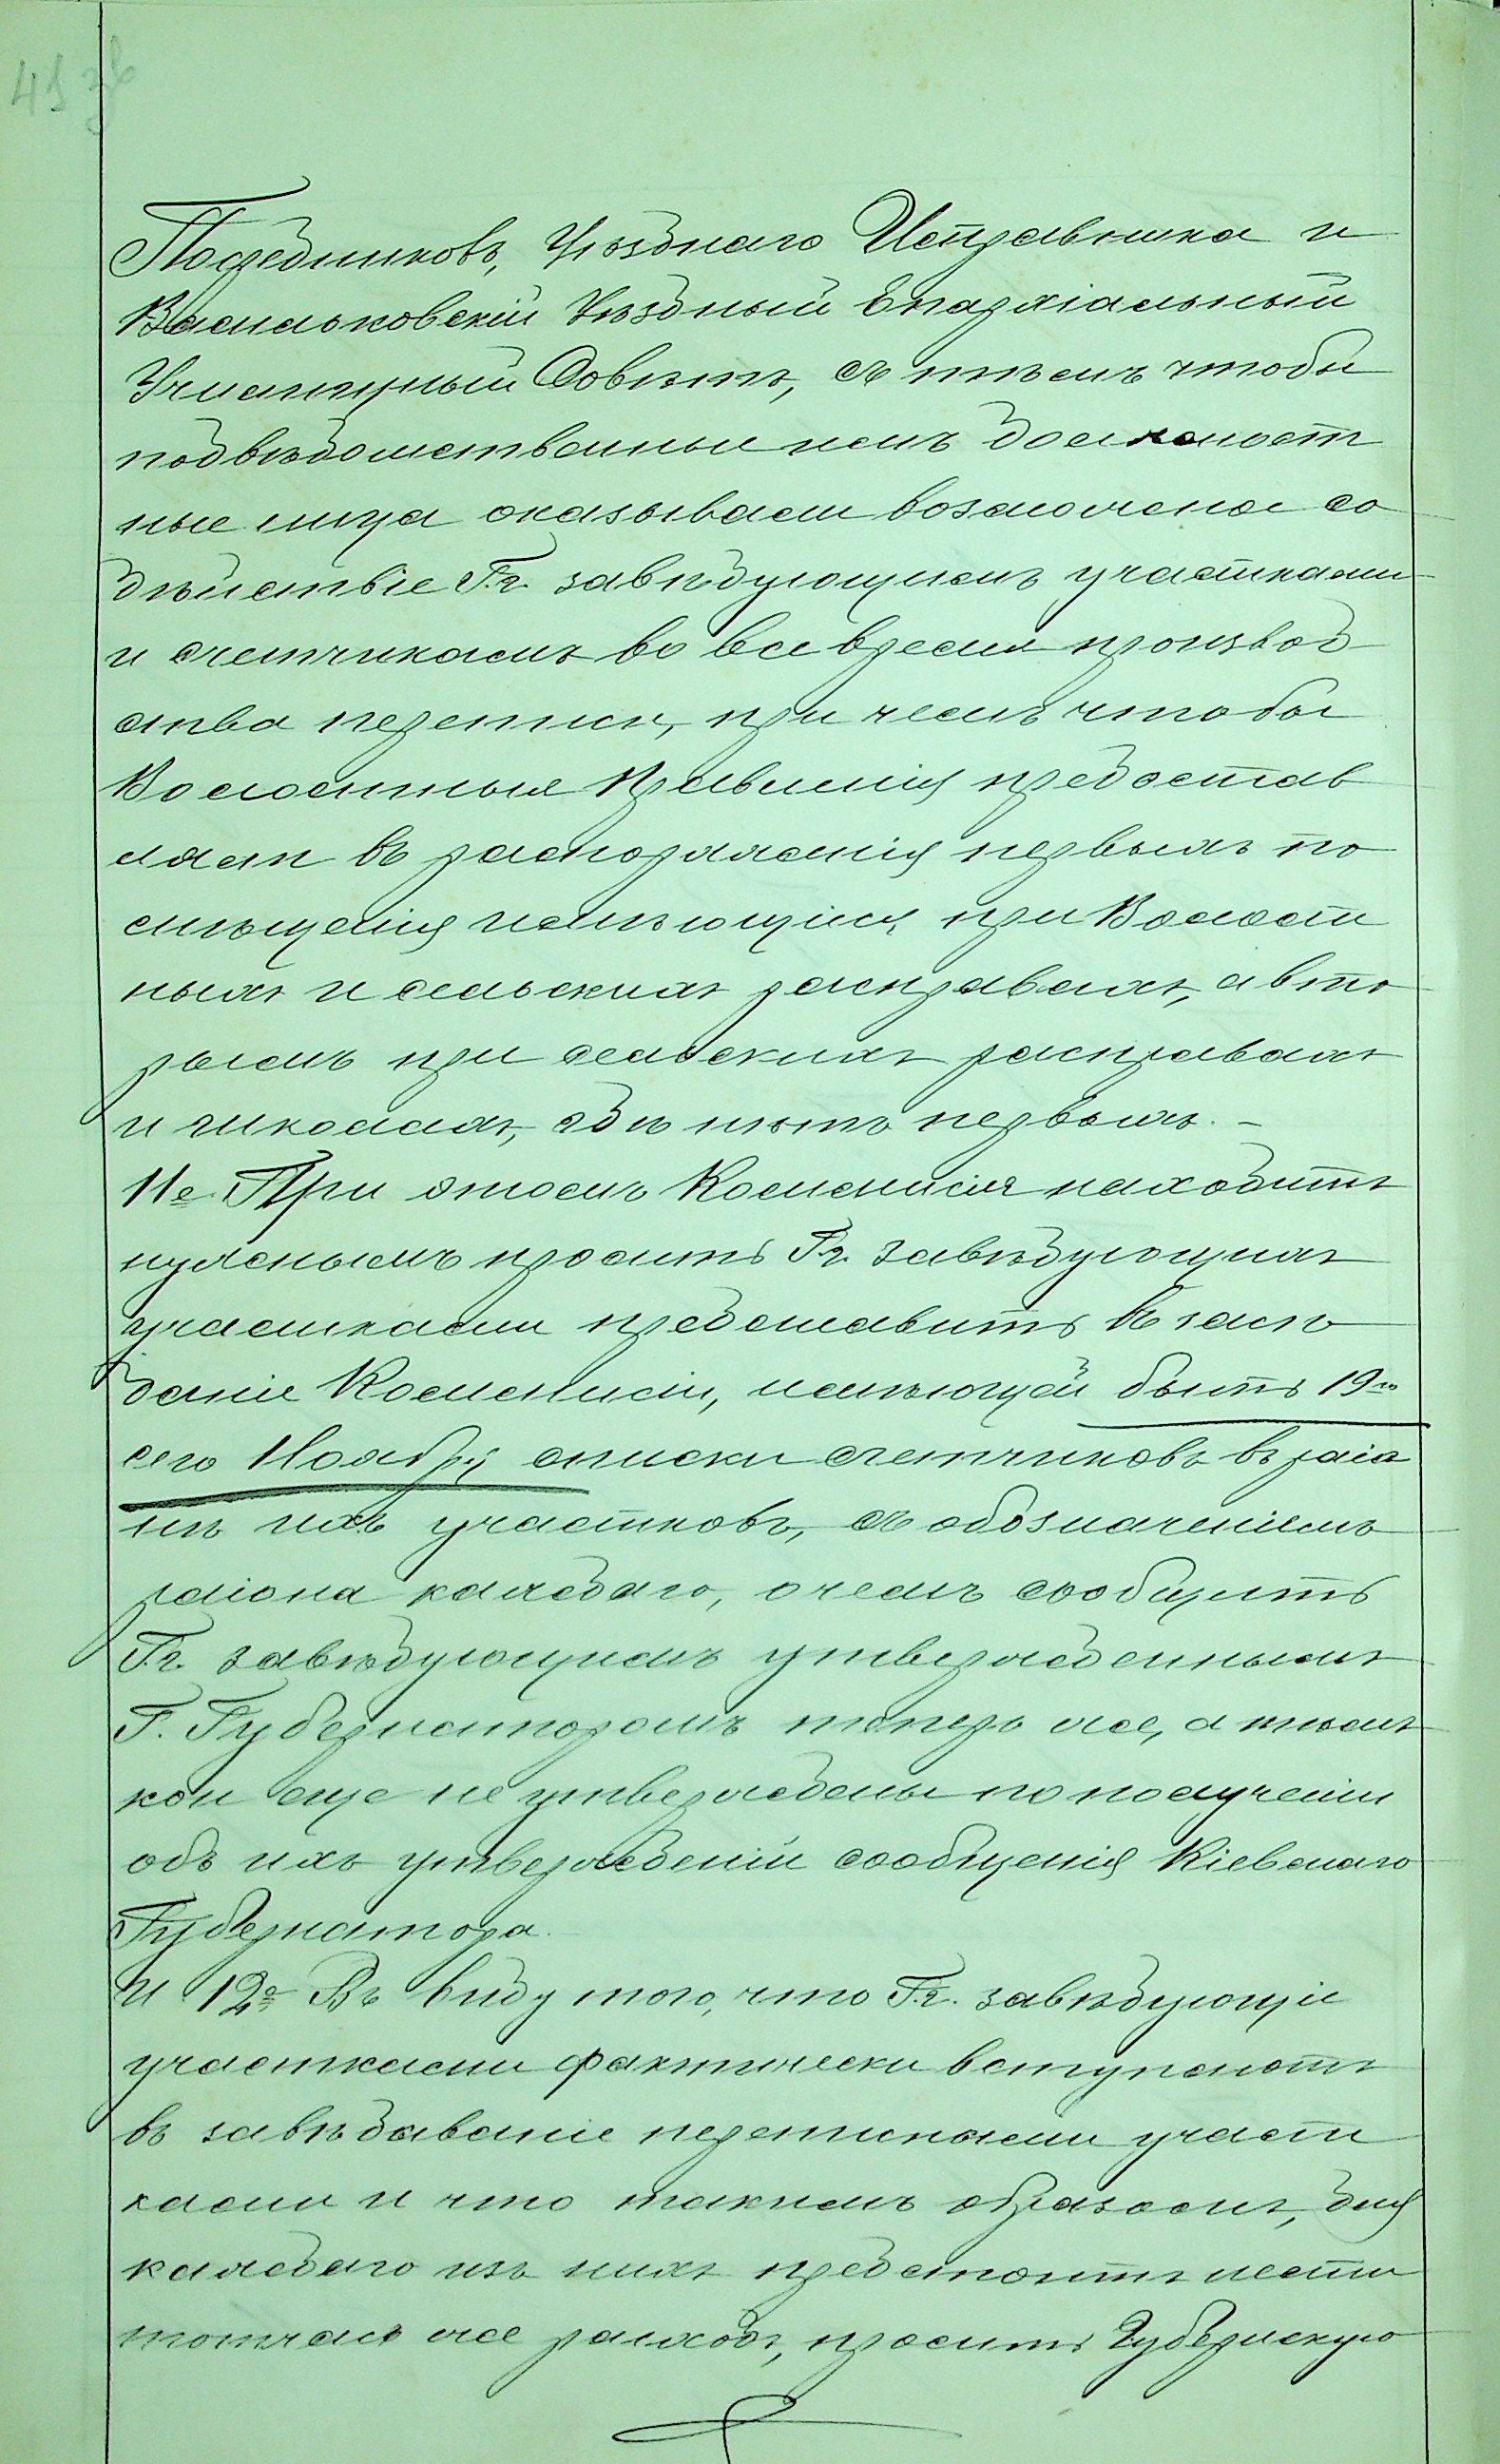 41 зв
Посредниковъ, Уѣзднаго Исправника и
Васильковскій Уѣздный Епархіальный
Училищный Совѣтъ, съ тѣмъ чтобы
подвѣдомственные имъ должност
ные лица оказывали возможное со
дѣйствіе Г.г. завѣдующимъ участками
и счетчикамъ во все время производ
ства переписи, при чемъ чтобы
Волостныя Правленія предостав
ляли въ распоряженія первымъ по
мѣщенія имѣющіяся при Волост
ныхъ и сельскихъ расправахъ, а вто
рымъ при сельскихъ расправахъ
и школахъ, гдѣ нѣтъ первыхъ. –
11е. При этомъ Коммисія находитъ
нужнымъ просить Г.г. завѣдующихъ
участками представить въ засѣ
даніе Коммисіи, имѣющей быть 19го
сего Ноября списки счетчиковъ въ раіо
нѣ ихъ участковъ, съ обозначеніемъ
раіона каждаго, о чемъ сообщить
Г.г. завѣдующимъ утвержденнымъ
Г. Губернаторомъ теперь же, а тѣмъ
кои еще не утверждены по полученіи
объ ихъ утвержденіи сообщенія Кіевскаго
Губернатора.
и 12е. Въ виду того, что Г.г. завѣдующіе
участками фактически вступаютъ
въ завѣдываніе переписными участ
ками и что такимъ образомъ, для
каждаго изъ нихъ предстоитъ нести
тотчасъ же расходъ, просить Губернскую